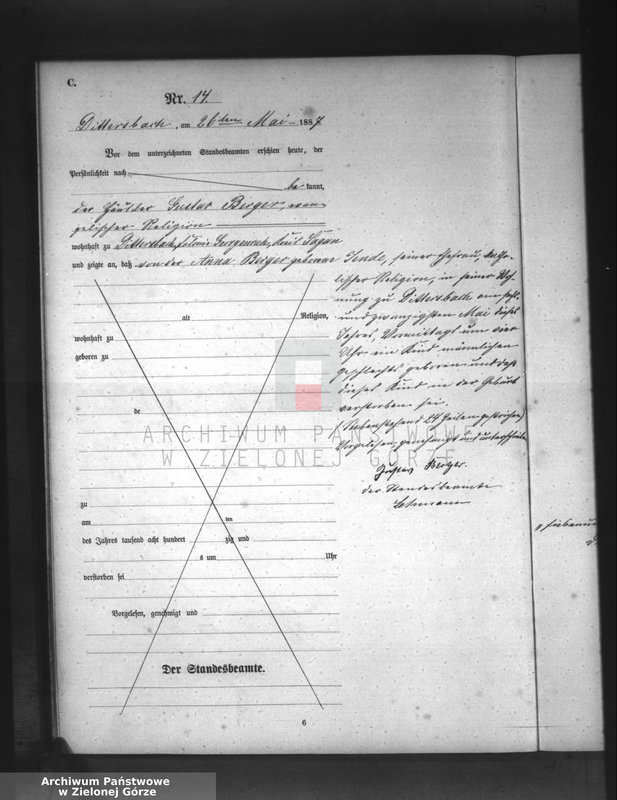 C.
Nr. 14.
Dittersbach, am 26ten Mai 1887
Vor dem unterzeichneten Standesbeamten erschien heute, der
Persönlichkeit nach
be kannt,
der Händler Gustav Berger, evan-
gelischer Religion
wohnhaft zu Dittersbach, Kolonie Kreis Sagan
und zeigte an, daß von der Anna Berger geborene
Jende, seiner Ehefrau,
lischer Religion, in seiner Woh-
nung zu Dittersbach am sechs-
undzwanzigsten Mai dieses
Jahres, Vormittags um vier
Uhr ein Kind männlichen
Geschlechts geboren und daß
dieses Kind in der Geburt
verstorben sei.
(Nebenstehend 24 Zeilen gestrichen)
Vorgelesen, genehmigt und unterschrieben
Gustav Berger.
der Standesbeamte
Lehmann
alt
Religion,
wohnhaft zu
geboren zu
de
zu
am
ten
des Jahres tausend acht hundert
zig und
s um
Uhr
verstorben sei
Vorgelesen, genehmigt und
Der Standesbeamte.
6
ARCHIWUM PAŃSTWOWE
W ZIELONEJ GÓRZE
Archiwum Państwowe
w Zielonej Górze